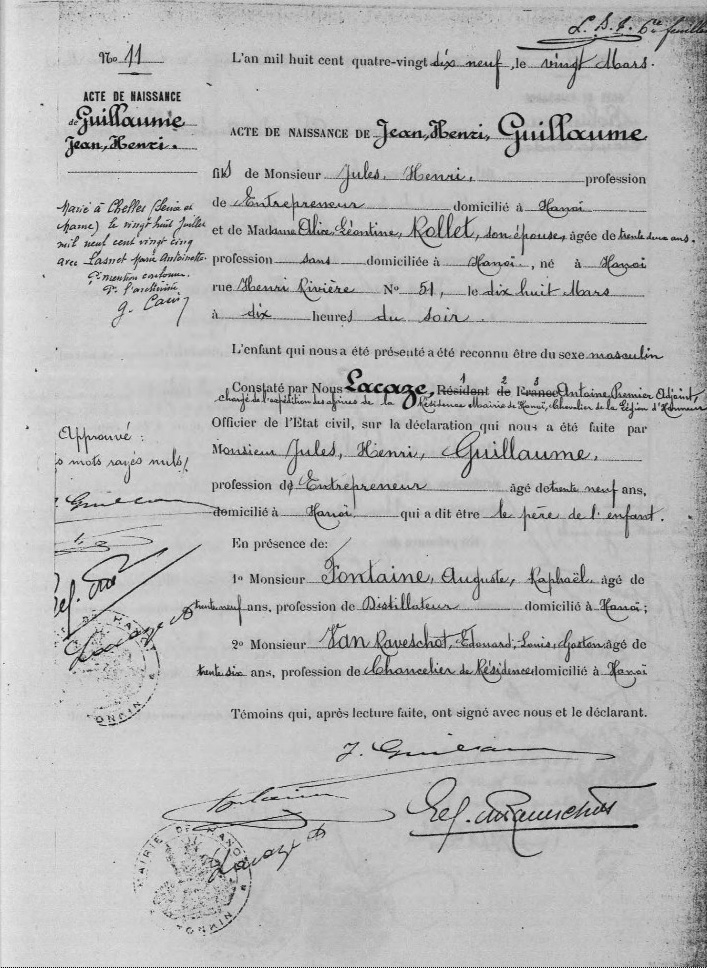 L. D. A. 6e feuillet
No 11
L'an mil huit cent quatre-vingt dix neuf, le vingt Mars.
ACTE DE NAISSANCE
de Guillaume
Jean, Henri.
ACTE DE NAISSANCE DE Jean, Henri, Guillaume
fils de Monsieur Jules, Henri, profession
de Entrepreneur domicilié à Hanoï
et de Madame Alix, Léontine, Rollet, son épouse, agée de trente deux ans.
profession sans domiciliée à Hanoï, né à Hanoï
rue Henri Rivière No 51, le dix huit Mars
à dix heures du soir.
Marié à Chelles (Seine et
Marne) le vingt huit Juillet
mil neuf cent vingt cinq
avec Lasnet Marie Antoinette.
Pr mention conforme.
L'enfant qui nous a été présenté a été reconnu être du sexe masculin
Constaté par Nous Lacaze, Résident de France Antoine, Premier Adjoint,
1 2 3
chargé de l'expédition des affaires de la Résidence Mairie de Hanoï, Chevalier de la Légion d'Honneur
Officier de l'Etat civil, sur la déclaration qui nous a été faite par
Monsieur Jules, Henri, Guillaume,
profession d'Entrepreneur âgé de trente neuf ans,
domicilié à Hanoï qui a dit être le père de l'enfant.
Approuvé :
mots rayés nuls/.
En présence de:
1o Monsieur Fontaine, Auguste, Raphaël, agé de
trente neuf ans, profession de Distillateur domicilié à Hanoï;
2o Monsieur Van Raveschot, Edouard, Louis, Gaston agé de
trente six ans, profession de Chancelier de Résidence domicilié à Hanoï
Témoins qui, après lecture faite, ont signé avec nous et le déclarant.
J. Guillaume
Fontaine
Lacaze A
MAIRIE DE HANOI
TONKIN